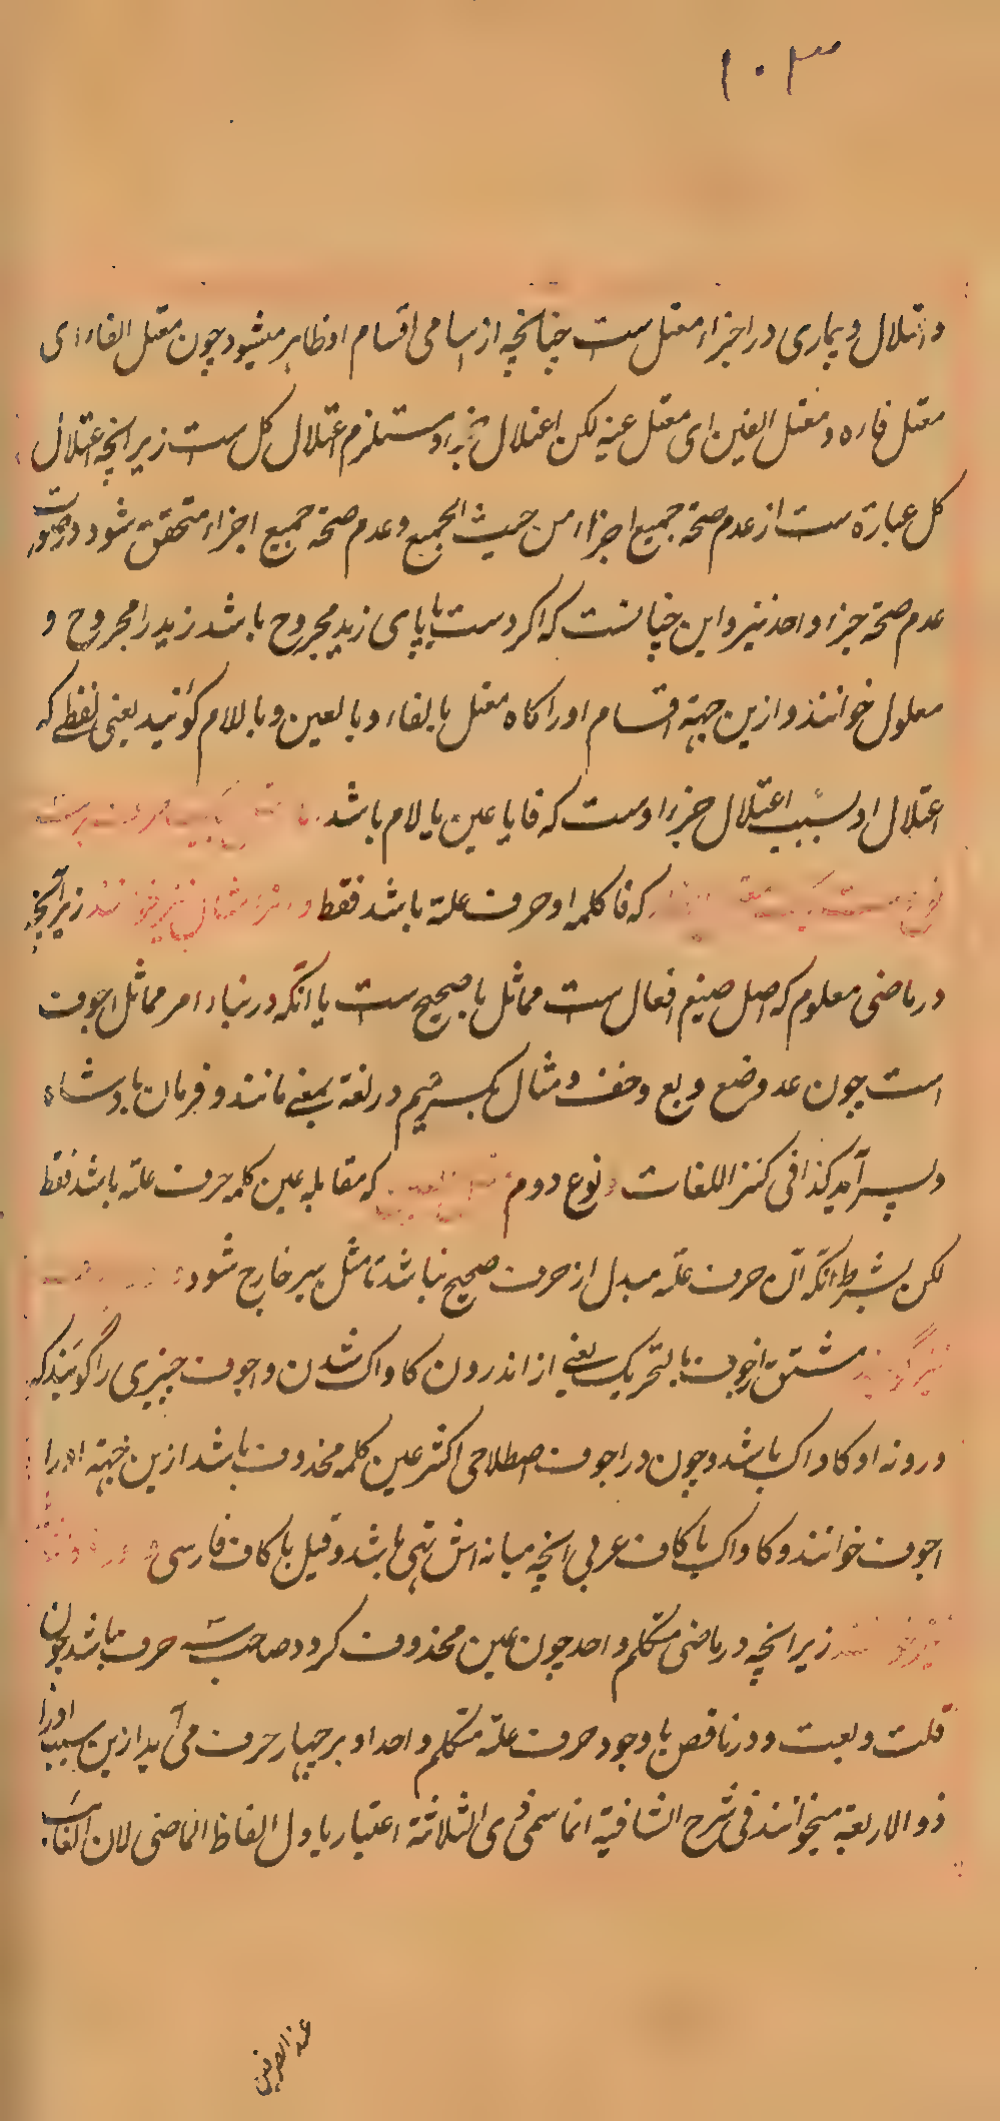 ۱۰۳
و اعتلال و بیماری در اجزاء معتل ست چنانچه از اسامی اقسام او ظاهر میشود چون معتل الفاء ای
معتل فاره و معتل العین ای معتل عینه لکن اعتلال جزء او مستلزم اعتلال کل ست زیرانچه اعتلال
کل عبارة ست از عدم صحة جمیع اجزاء من حیث الجمیع و عدم صحة جمیع اجزاء متحقق شود در صورت
عدم صحة جزء واحد نیز و این چنانست که اکر دست یا پای زید مجروح باشد زید را مجروح و
معلول خوانند و ازین جهة اقسام او را کاه معتل بالفاء و بالعین و باللام کوئید یعنی لفظی که
اعتلال او بسبب اعتلال جزء اوست که فا یا عین یا لام باشد
که فا کلمه او حرف علة باشد فقط و زیرانچه
در ماضی معلوم که اصل صیغ افعال ست مماثل با صحیح ست یا آنکه در بناء امر مماثل اجوف
است چون عد و ضع و بع و خف و مثال بکسر میم در لغة بمعنی مانند و فرمان بادشاه
و پسر آمد کذا فی کنز اللغات و نوع دوم که مقابله عین کلمه حرف علة باشد فقط
لکن بشرط آنکه آن حرف علة مبدل از حرف صحیح نباشد تا مثل بیر خارج شود
مشتق از جوف بالتحریک یعنی از اندرون کاواک شدن و اجوف چیزی را گویند که
درونه او کاواک باشد و چون در اجوف اصطلاحی اکثر عین کلمه محذوف باشد ازین جهة او را
اجوف خوانند و کاواک با کاف عربی انچه میانه اش تهی باشد و قیل با کاف فارسی
زیرانچه در ماضی متکلم واحد چون عین محذوف کردد صاحب سه حرف باشد چون
قلت و بعت و در ناقص با وجود حرف علة متکلم واحد او بر چهار حرف می آید ازین سبب او را
ذو الاربعة میخوانند فی شرح الشافیة انما سمی ذی الثلاثة اعتبار باول الفاظ الماضی لان الغالب
عند الصرفیین